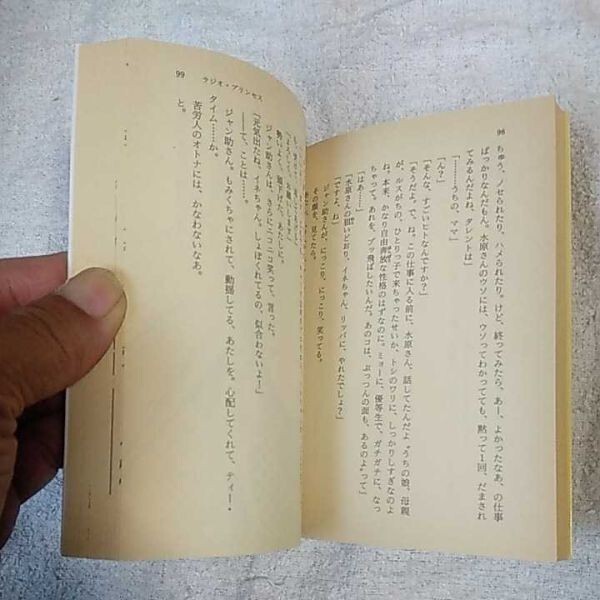 98
ちゅう、ノせられたり、ハメられたり。けど、終ってみたら、あー、よかったなあ、の仕事
ばっかりなんだもん。水原さんのウソには、ウソってわかってても、黙って1回、だまされ
てみるんだよね、タレントは」
「………うちの、ママ」
「ん?」
「そんな、すごいヒトなんですか?」
「そうだよ。で、ね。この仕事に入る前に、水原さん、話してたんだよ〝うちの娘、母親
が、ルスがちの、ひとりっ子で来ちゃったせいか、トシのワリに、しっかりしすぎなのよ
ね。本来、かなり自由奔放な性格のはずなのに。ミョーに、優等生で、ガチガチに、なっ
ちゃって。あれを、ブッ飛ばしたいんだ。あのコは、ぷっつんの面も、あるのよ〟って」
「はあ……」
「水原さんの狙いどおり、イネちゃん、リッパに、やれたでしょ?」
「ですよ、ね」
ジャン助さん、にっこり、にっこり、笑ってる。
その顔を、見てたら。
99 ラジオ・プリンセス
「よろしく、お願いします」
勢いよく、頭下げた、あたしに。
ジャン助さんは、さらにニコニコ笑って、言った。
「元気出たね、イネちゃん。しょぼくれてるの、似合わないよー」
――て、ことは……。
ジャン助さん。もみくちゃにされて、動揺してる、あたしを。心配してくれて、ティー・
タイム……か。
苦労人のオトナには、かなわないなあ。
と。